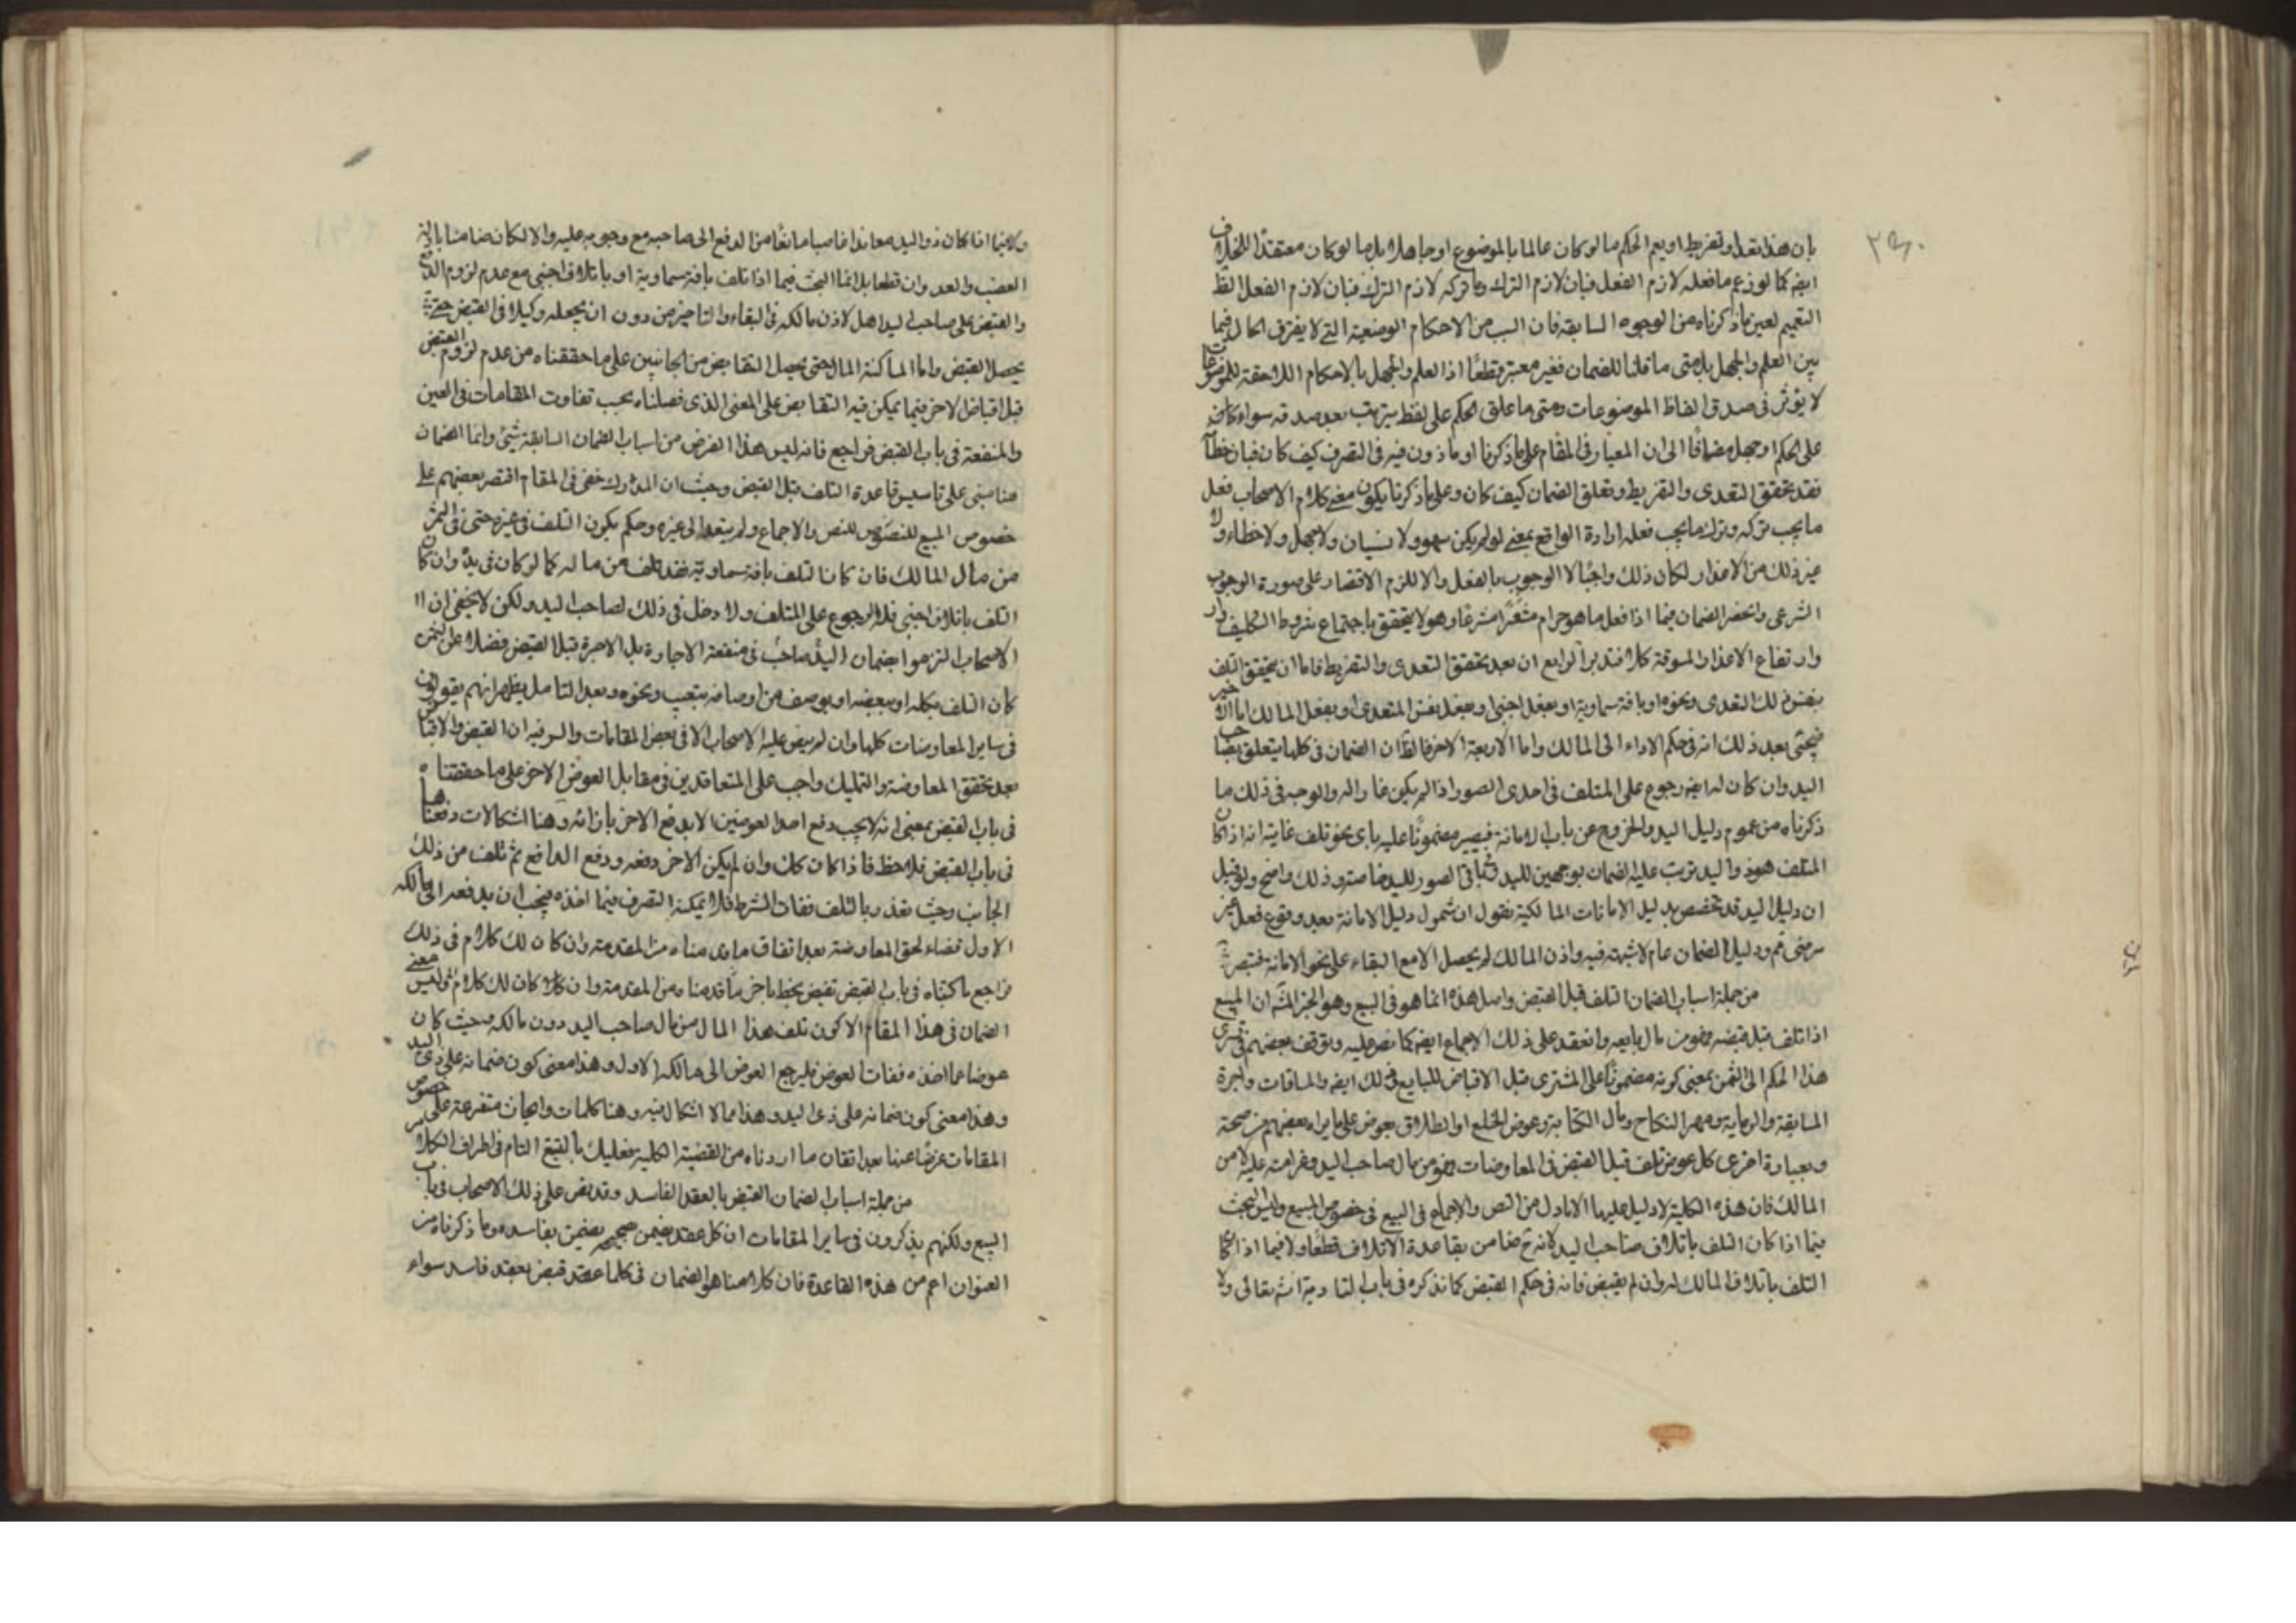 بان هذا تعد او تفريط او يعم الحكم ما لو كان عالما بالموضوع او جاهلا بل ما لو كان معتقدا للخلاف
ايضا كما لو زعم ما فعله لازم الفعل فبان لازم الترك وما تركه لازم الترك فبان لازم الفعل الظ
التعميم لعين ما ذكرناه من الوجوه السابقة فان السبب من الاحكام الوضعية التي لا يفترق الحال فيها
بين العلم والجهل بل متى ما قلنا للضمان فغير معتبر قطعا اذ العلم والجهل بالاحكام اللاحقة للموضوعات
لا يؤثر في صدق الفاظ الموضوعات ومتى ما علق الحكم على لفظ يترتب بعد صدقه سواء كان
على الحكم او جهل مضافا الى ان المعيار في المقام على ما ذكرنا او ماذون فيه في التصرف كيف كان فبان خطا
فقد تحقق التعدى والتفريط وتعلق الضمان كيف كان وعلى ما ذكرنا يكون معنى كلام الاصحاب فعل
ما يجب تركه وترك ما يجب فعله ارادة الواقع بمعنى لو لم يكن سهو ولا نسيان ولا جهل ولا خطاء ولا
غير ذلك من الاعذار لكان ذلك واجبا لا الوجوب بالفعل والا للزم الاقتصار على صورة الوجوب
الشرعى وانحصر الضمان فيما اذا فعل ما هو حرام شرعا وهو لا يتحقق باجتماع شروط التكليف
وارتفاع الاعذار المسوقة كلا فتدبر الرابع ان بعد تحقق التعدى والتفريط فاما ان يتحقق التلف
بنفس ذلك التعدى ونحوه او بافة سماوية او بفعل اجنبى او بفعل نفس المتعدى او بفعل المالك اما الاخير
فيجئى بعد ذلك انه في حكم الاداء الى المالك واما الاربعة الاخر فالظ ان الضمان في كلها يتعلق بصاحب
اليد وان كان له ايضا رجوع على المتلف في احدى الصور اذا لم يكن غارا له والوجه في ذلك ما
ذكرناه من عموم دليل اليد والخروج عن باب الامانة فيصير مضمونا عليه باى نحو تلف غايته انه اذا كان
المتلف هو ذو اليد ترتب عليه الضمان بوجهين لليد وفي باقى الصور لليد خاصة وذلك واضح ولو قيل
ان دليل اليد قد تخصص بدليل الامانات المالكية نقول ان شمول دليل الامانة بعد وقوع فعل غير
مرضى فم ودليل الضمان عام لا شبهة فيه واذن المالك لم يحصل الا مع البقاء على نحو الامانة فتبصر
من جملة اسباب الضمان التلف قبل القبض واصل هذه انما هو في البيع وهو الخبر ان المبيع
اذا تلف قبل قبضه فهو من مال بايعه وانعقد على ذلك الاجماع ايضا كما نص عليه وتوقف بعضهم في تسرى
هذا الحكم الى الثمن بمعنى كونه مضمونا على المشترى قبل الاقباض للبايع في ذلك ايضا والمساقات واجرة
المسابقة والرماية ومهر النكاح ومال الكتابة وعوض الخلع او الطلاق بعوض على ما يراه بعضهم من صحة
وبعبارة اخرى كل عوض تلف قبل القبض في المعاوضات فهو من مال صاحب اليد وغرامته عليه لا من
المالك فان هذه الكلية لا دليل عليها الا ما دل من النص والاجماع في البيع في خصوص المبيع وليس البحث
فيما اذا كان التلف باتلاف صاحب اليد لانه ح ضامن بقاعدة الاتلاف قطعا ولا فيما اذا كان
التلف باتلاف المالك له وان لم يقبض فانه في حكم القبض كما نذكره في باب التادية انش تعالى ولا
ولا فيما اذا كان ذو اليد معاندا غاصبا مانعا من الدفع الى صاحبه مع وجوبه عليه والا لكان ضامنا باليد
الغصب والعدوان قطعا بل انما البحث فيما اذا تلف بافة سماوية او باتلاف اجنبى مع عدم لزوم الدفع
والقبض على صاحب اليد اهل لاذن مالكه في البقاء والتاخير من دون ان يجعله وكيلا في القبض حتى
يحصل القبض واما لماكنة المال حتى يحصل التقابض من الجانبين على ما حققناه من عدم لزوم القبض
قبل اقباض الاخر فيما يمكن فيه التقابض على المعنى الذى فصلناه بحسب تفاوت المقامات في العين
والمنفعة في باب القبض فراجع فانه ليس هذا الفرض من اسباب الضمان السابقة شئ وانما الضمان
هنا مبنى على تاسيس قاعدة التلف قبل القبض وحيث ان المدارك خفى في المقام اقتصر بعضهم على
خصوص المبيع للنصوص للنص والاجماع ولم يتعد الى غيره وحكم بكون التلف في غيره حتى في الثمن
من مال المالك فان كان التلف بافة سماوية فقد تلف من ماله كما لو كان في يده وان كان
التلف باتلاف اجنبى فله الرجوع على المتلف ولا دخل في ذلك لصاحب اليد ولكن لا يخفى ان
الاصحاب التزموا بضمان اليد صاحب في منفعة الاجارة بل الاجرة قبل القبض فضلا عن الثمن
كان التلف بكله او ببعضه او بوصف من اوصافه بتعيب ونحوه وبعد التامل يظهر انهم يقولون
في ساير المعاوضات كلها وان لم ينص عليه الاصحاب الا في بعض المقامات والسر فيه ان القبض والاقباض
بعد تحقق المعاوضة والتمليك واجب على المتعاقدين في مقابل العوض الاخر على ما حققناه
في باب القبض بمعنى انه لا يجب دفع احد العوضين الا بدفع الاخر بازائه وهنا اشكالات دفعناها
في باب القبض فلاحظ فاذا كان كك وان لم يكن الاخر دفعه ودفع الدافع ثم تلف من ذلك
الجانب وحيث تعذر بالتلف ففات الشرط فلا يمكنه التصرف فيما اخذه فيجب ان يدفعه الى مالكه
الاول قضاء لحق المعاوضة بعد اتفاق ما قدمناه من المقدمة وان كان لك كلام في ذلك
فراجع ما كتبناه في باب القبض تفيض بحظ باخر ما قدمناه من المقدمة وان كان لك كلام وليس معنى
الضمان في هذا المقام الا كون تلف هذا المال من مال صاحب اليد دون مالكه وحيث كان
عوضا عما اخذه ففات العوض فليرجع العوض الى مالكه الاول وهذا معنى كون ضمانه على ذى اليد
وهذا معنى كون ضمانه على ذى اليد وهذا مما لا اشكال فيه وهنا كلمات وابحاث متفرعة على خصوص
المقامات عرضا عنها بعد اتقان ما اردناه من القضية الكلية فعليك بالتتبع التام في اطراف الكلام
من جملة اسباب الضمان القبض بالعقد الفاسد وقد نص على ذلك الاصحاب في باب
البيع ولكنهم يذكرون في ساير المقامات ان كل عقد يضمن بصحيحه يضمن بفاسده وما ذكرناه من
العنوان اعم من هذه القاعدة فان كلامنا هو الضمان في كلما عقد قبض بعقد فاسد سواء